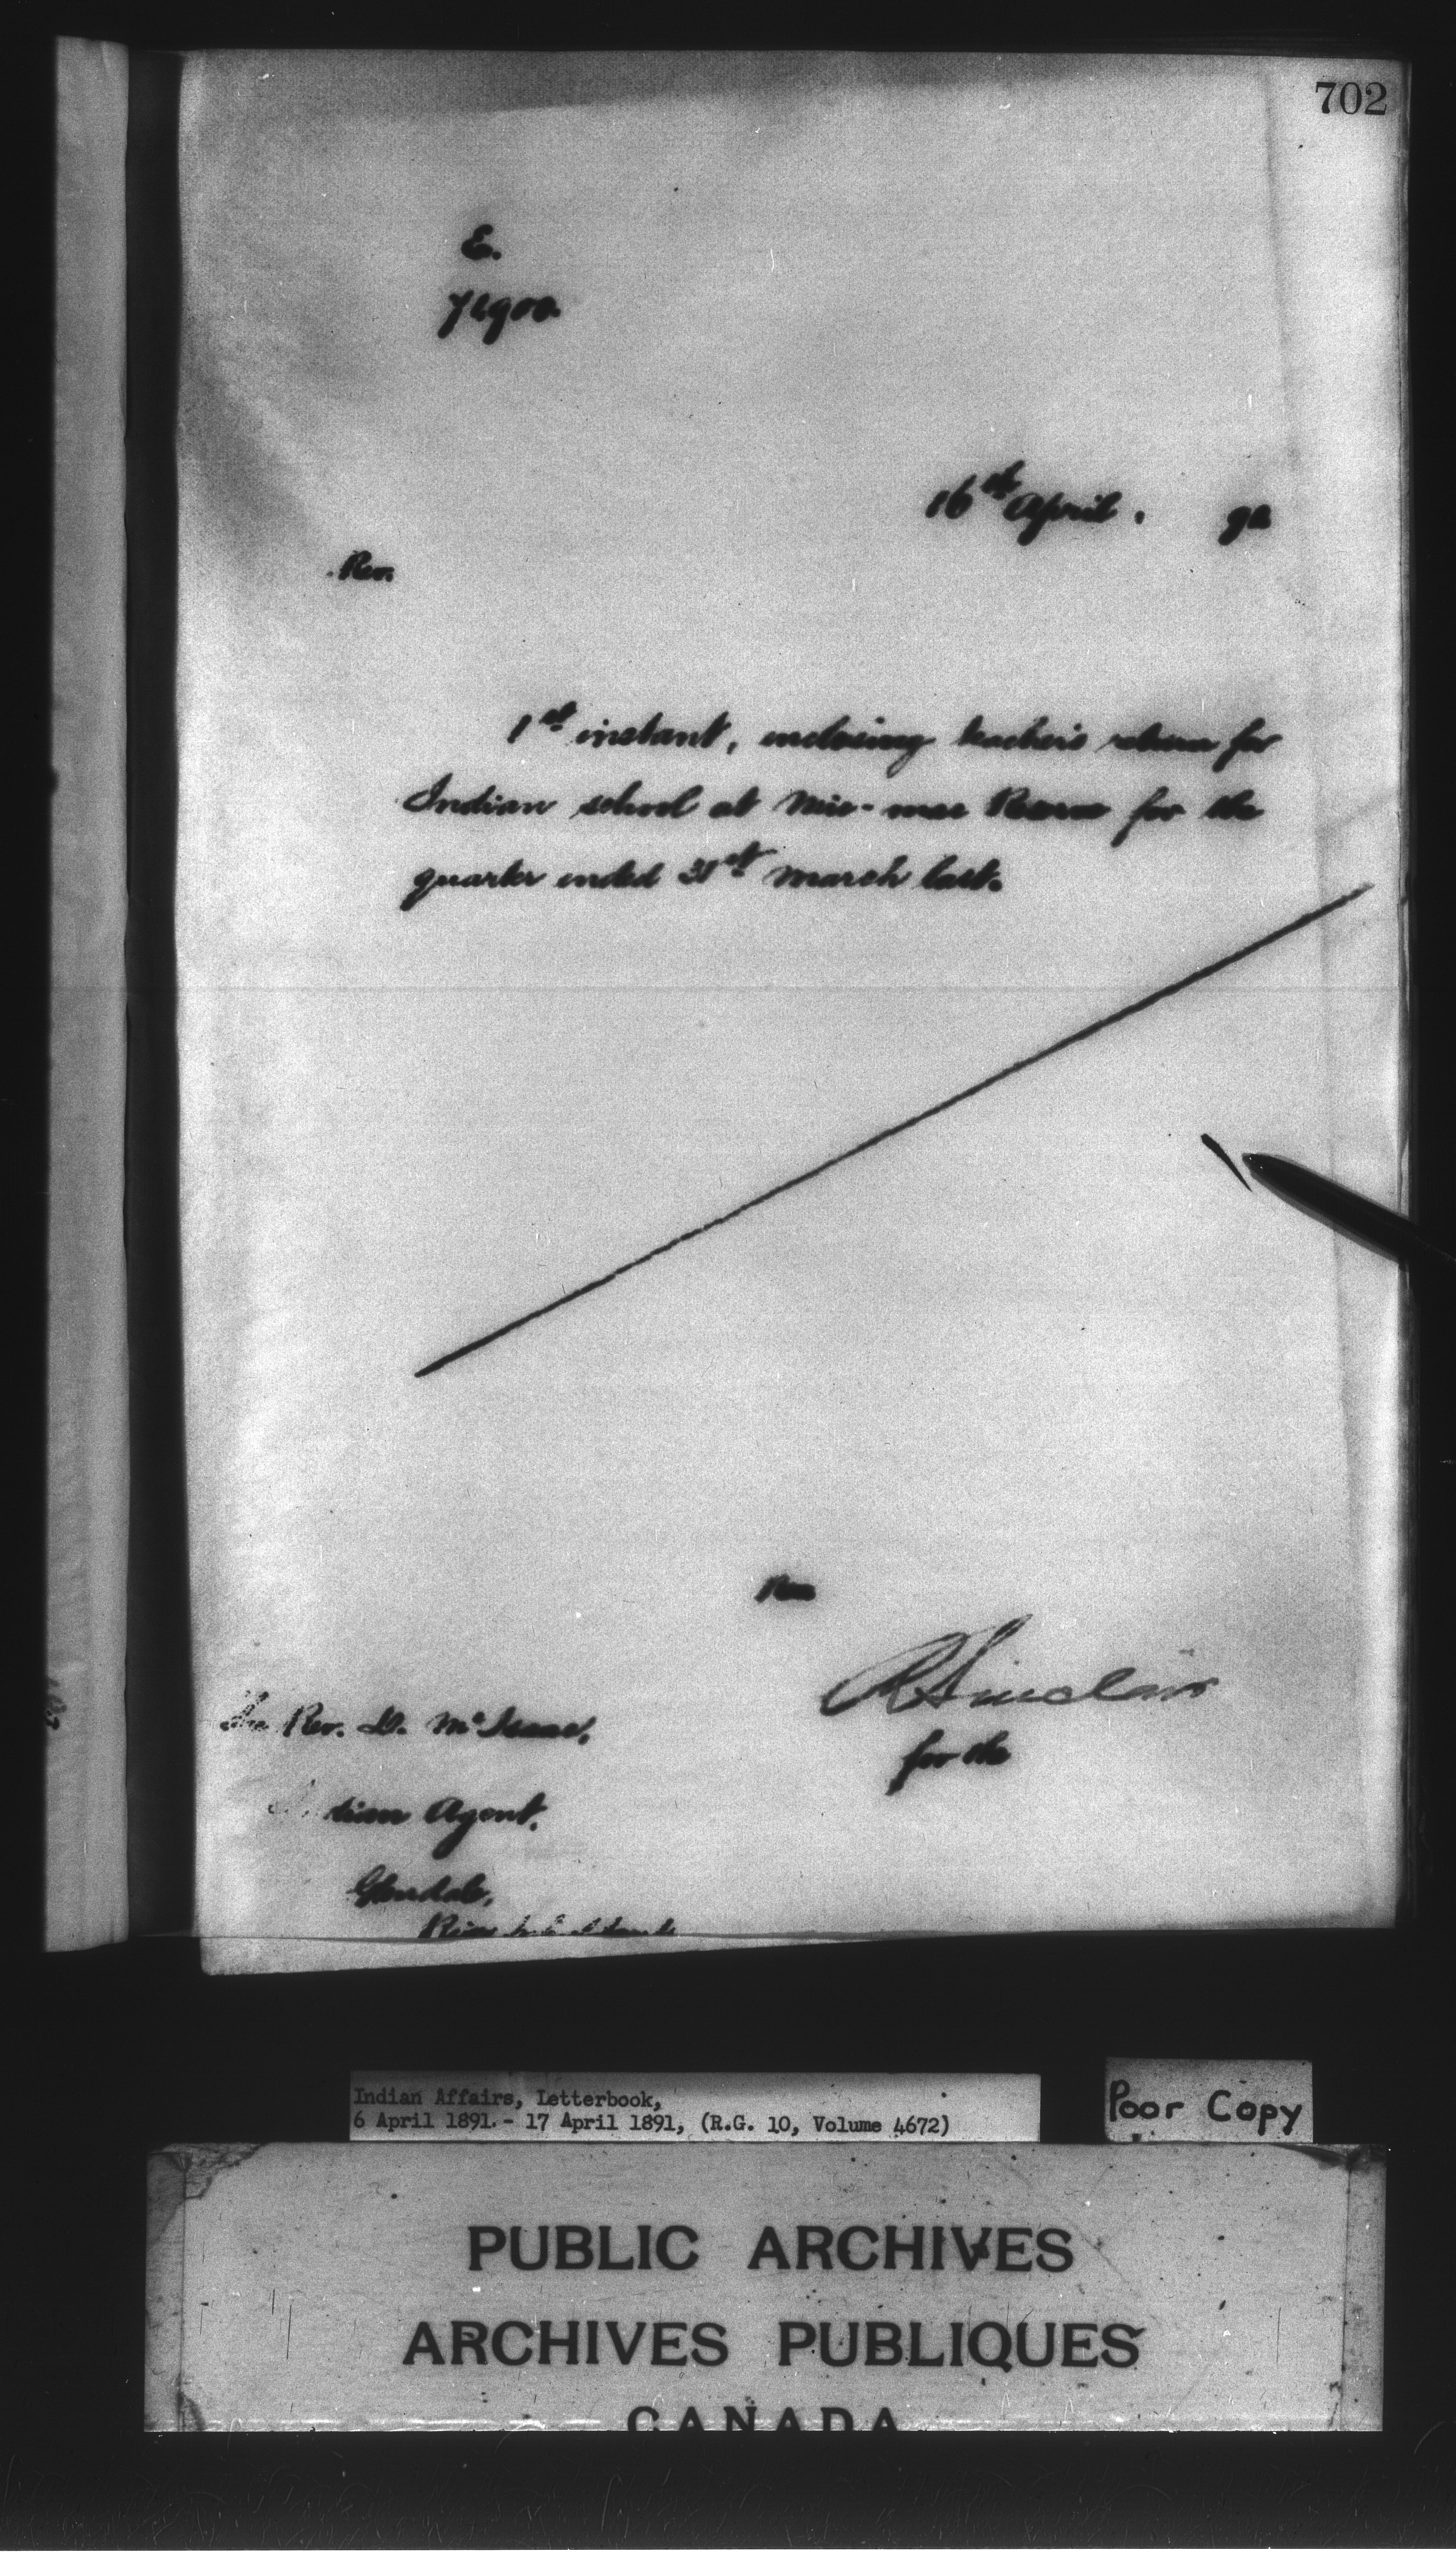 702
E.
16th April, 91
Rev.
1st instant, enclosing teacher's return for
Indian school at Mic-mac Reserve for the
quarter ended 31st March last.
Rev
A Sinclair
for the
The Rev. D. McIsaac,
Indian Agent,
Glendale,
River
Indian Affairs, Letterbook,
6 April 1891.- 17 April 1891, (R.G. 10, Volume 4672)
Poor Copy
PUBLIC ARCHIVES
ARCHIVES PUBLIQUES
CANADA